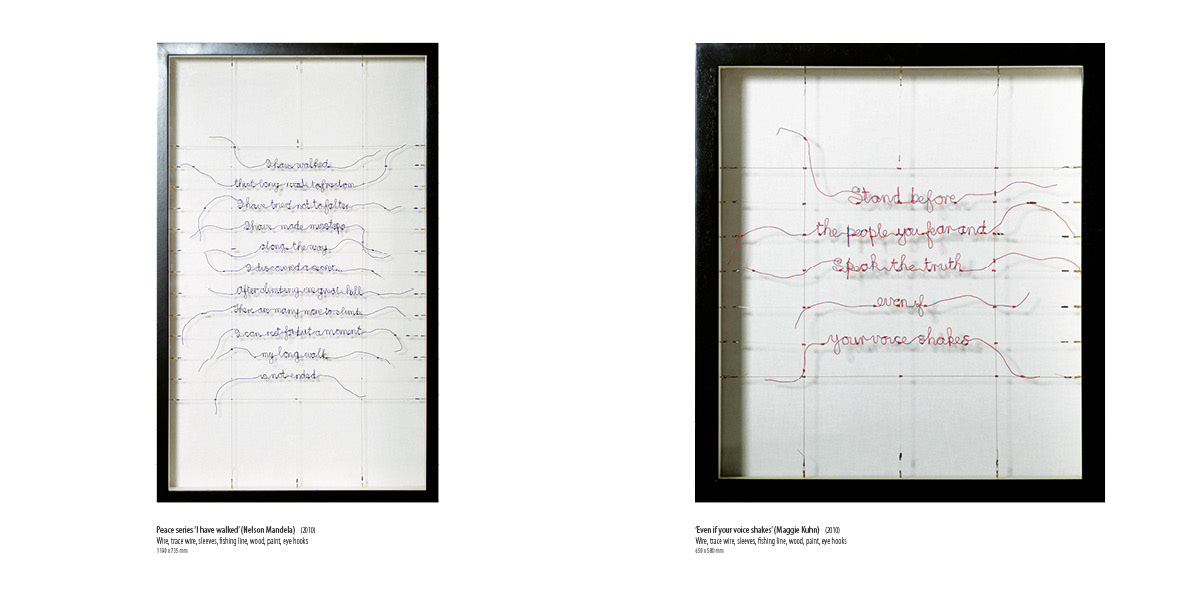 I have walked
that long walk to freedom
I have tried not to falter
I have made missteps
along the way
I discovered a secret...
After climbing one great hill
There are many more to climb
I can rest for but a moment
my long walk
is not ended
Peace series ‘I have walked’ (Nelson Mandela) (2010)
Wire, trace wire, sleeves, fishing line, wood, paint, eye hooks
1190 x 735 mm
Stand before
the people you fear and
Speak the truth
even if
your voice shakes
‘Even if your voice shakes’ (Maggie Kuhn) (2010)
Wire, trace wire, sleeves, fishing line, wood, paint, eye hooks
650 x 580 mm